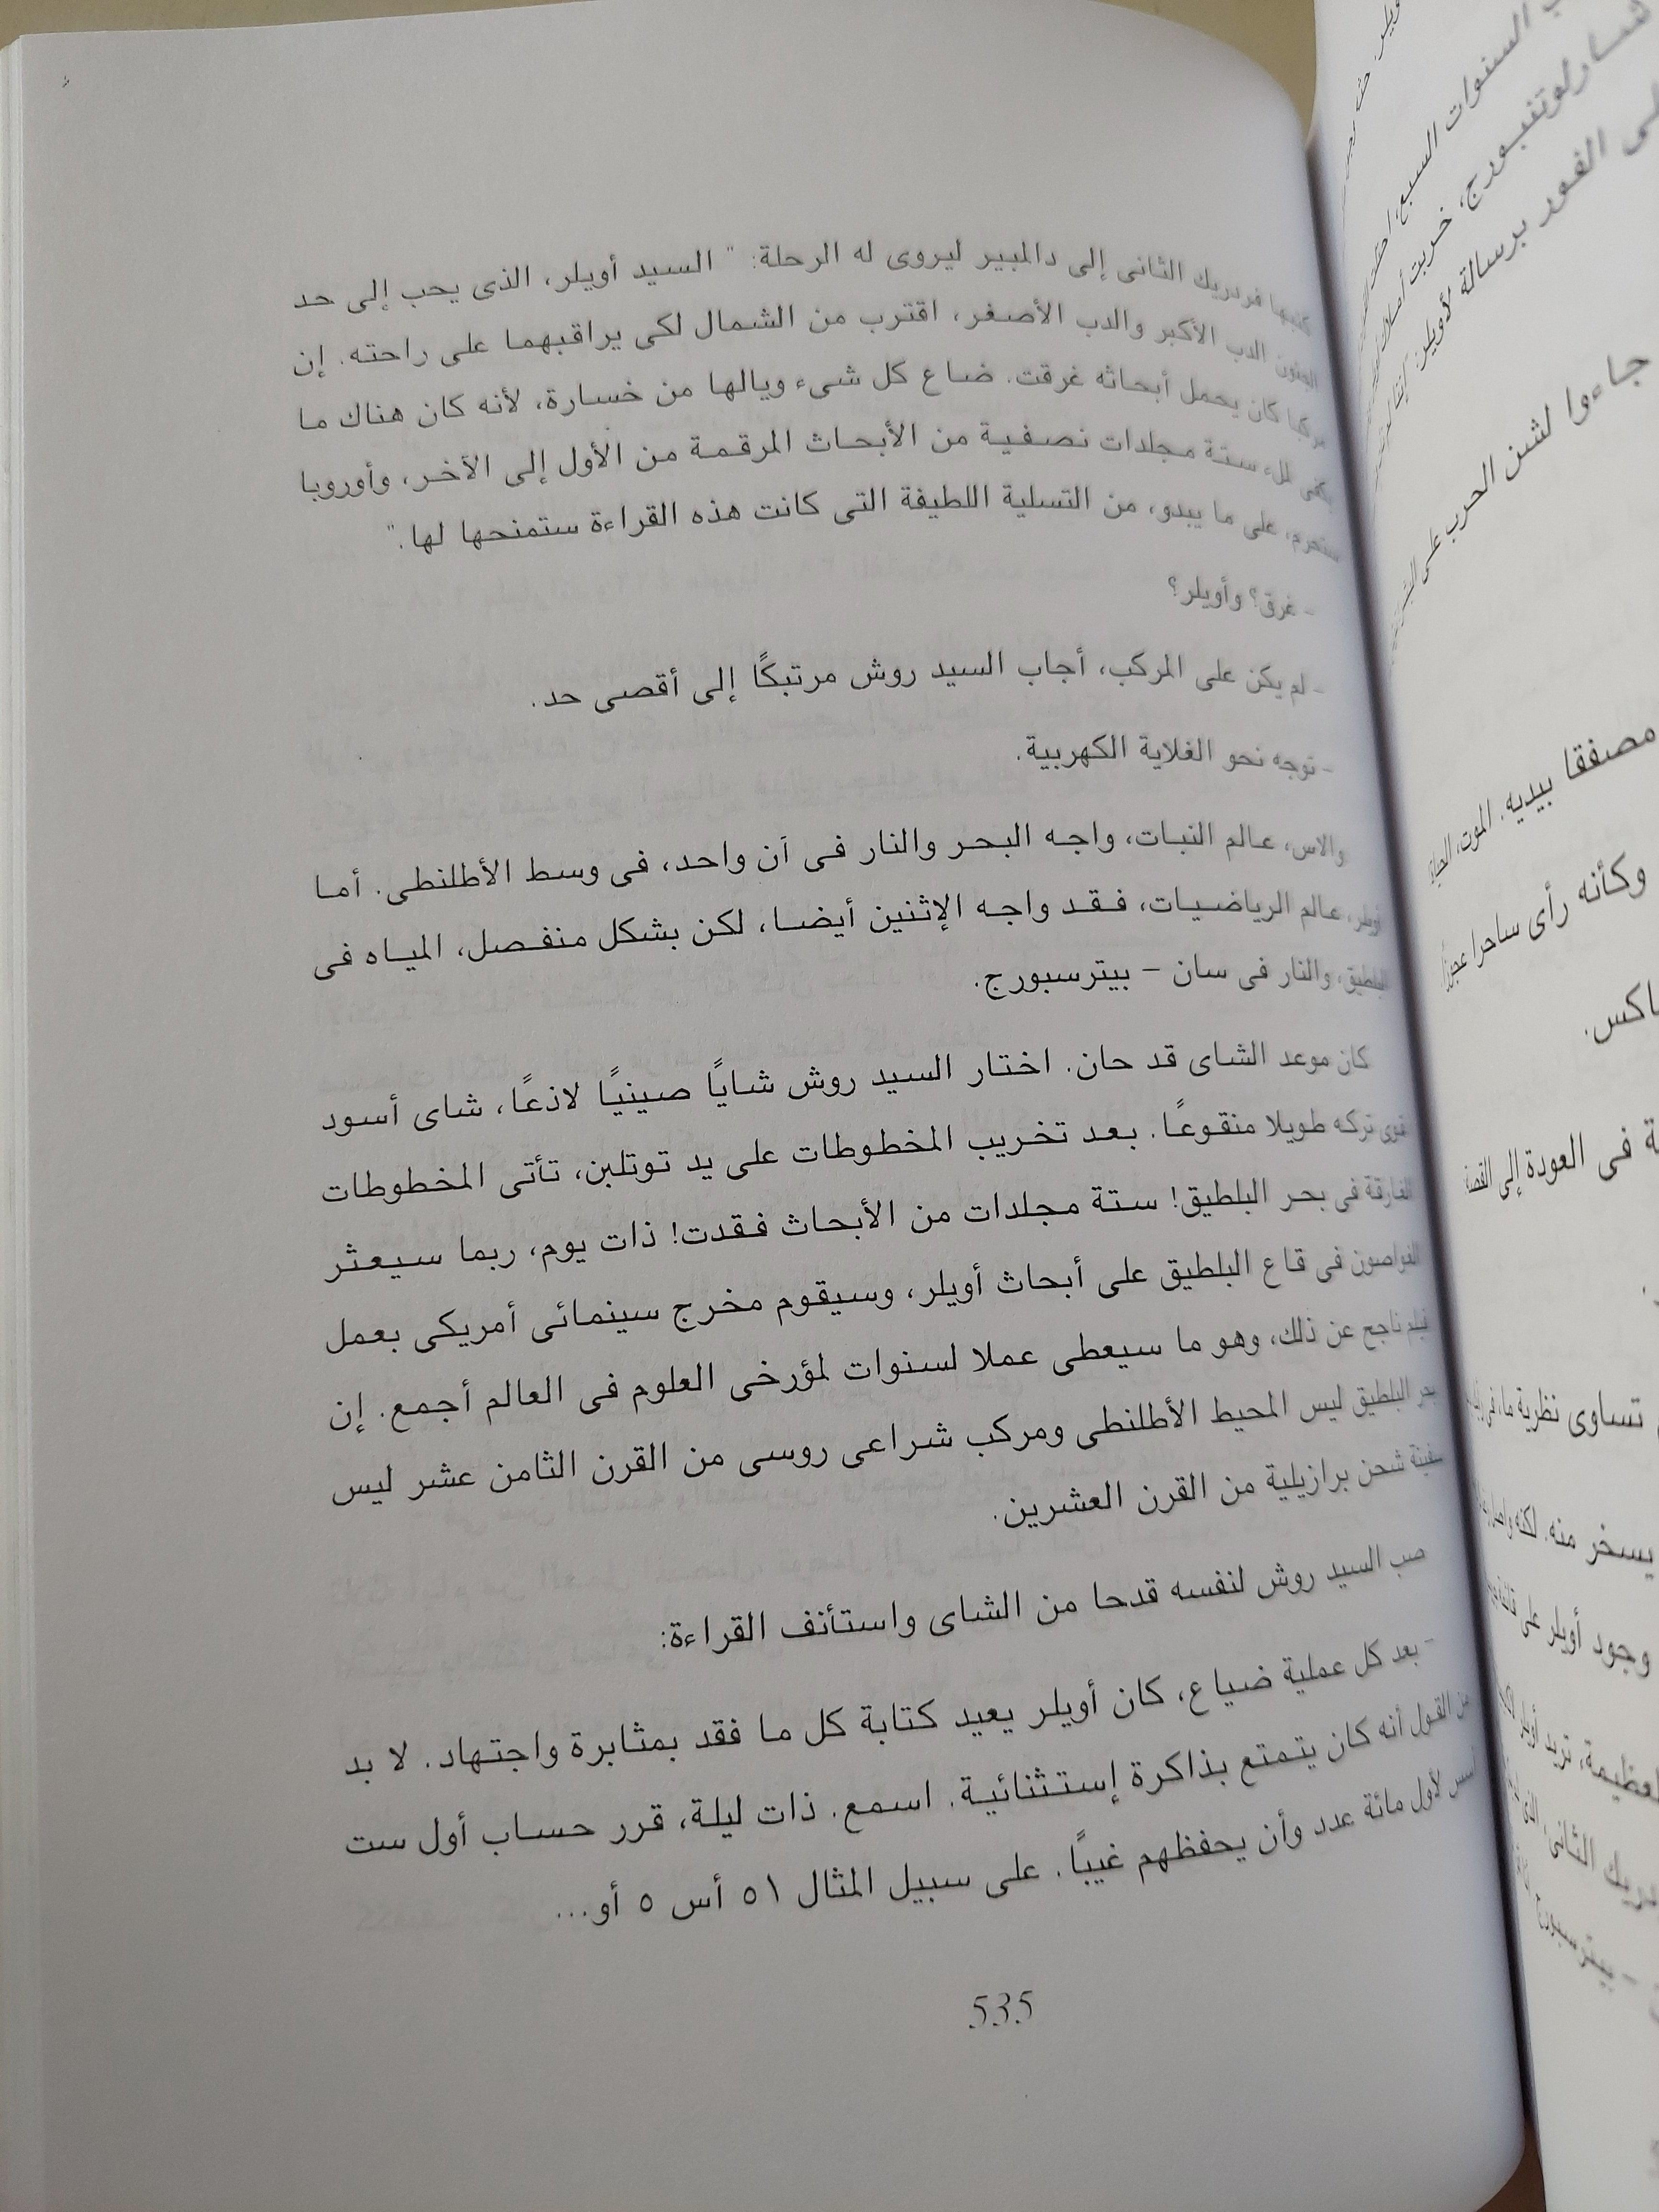 كتبها فردريك الثانى إلى دالمبير ليروى له الرحلة: " السيد أويلر، الذى يحب إلى حد
الجنون الدب الأكبر والدب الأصغر، اقترب من الشمال لكى يراقبهما على راحته. إن
مركبا كان يحمل أبحاثه غرقت. ضاع كل شىء ويالها من خسارة، لأنه كان هناك ما
يكفى لملء ستة مجلدات نصفية من الأبحاث المرقمة من الأول إلى الأخر، وأوروبا
ستحرم، على ما يبدو، من التسلية اللطيفة التى كانت هذه القراءة ستمنحها لها."
- غرق؟ وأويلر؟
- لم يكن على المركب، أجاب السيد روش مرتبكًا إلى أقصى حد.
- توجه نحو الغلاية الكهربية.
والاس، عالم النبات، واجه البحر والنار فى آن واحد، فى وسط الأطلنطى. أما
أويلر، عالم الرياضيات، فقد واجه الإثنين أيضا، لكن بشكل منفصل، المياه فى
البلطيق، والنار فى سان – بيترسبورج.
كان موعد الشاى قد حان. اختار السيد روش شايًا صينيًا لاذعًا، شاى أسود
قوى تركه طويلا منقوعًا. بعد تخريب المخطوطات على يد توتلبن، تأتى المخطوطات
الغارقة فى بحر البلطيق! ستة مجلدات من الأبحاث فقدت! ذات يوم، ربما سيعثر
الغواصون فى قاع البلطيق على أبحاث أويلر، وسيقوم مخرج سينمائى أمريكى بعمل
فيلم ناجح عن ذلك، وهو ما سيعطى عملا لسنوات لمؤرخى العلوم فى العالم أجمع. إن
بحر البلطيق ليس المحيط الأطلنطى ومركب شراعى روسى من القرن الثامن عشر ليس
سفينة شحن برازيلية من القرن العشرين.
صب السيد روش لنفسه قدحا من الشاى واستأنف القراءة:
- بعد كل عملية ضياع، كان أويلر يعيد كتابة كل ما فقد بمثابرة واجتهاد. لا بد
من القول أنه كان يتمتع بذاكرة إستثنائية. اسمع. ذات ليلة، قرر حساب أول ست
أسس لأول مائة عدد وأن يحفظهم غيبًا. على سبيل المثال ٥١ أس ٥ أو...
535
السنوات السبع،
شارلوتنبورج، خربت
الفور برسالة لأويلر:
جاءوا لشن الحرب على
مصفقا بيديه. الموت، الحياة
وكأنه رأى ساحرا عجوزًا
ماكس.
فى العودة إلى القصة
تساوى نظرية ما، فى
يسخر منه. لكنه
وجود أويلر على
العظيمة، تريد
الثانى، الذى
- بيترسبورج